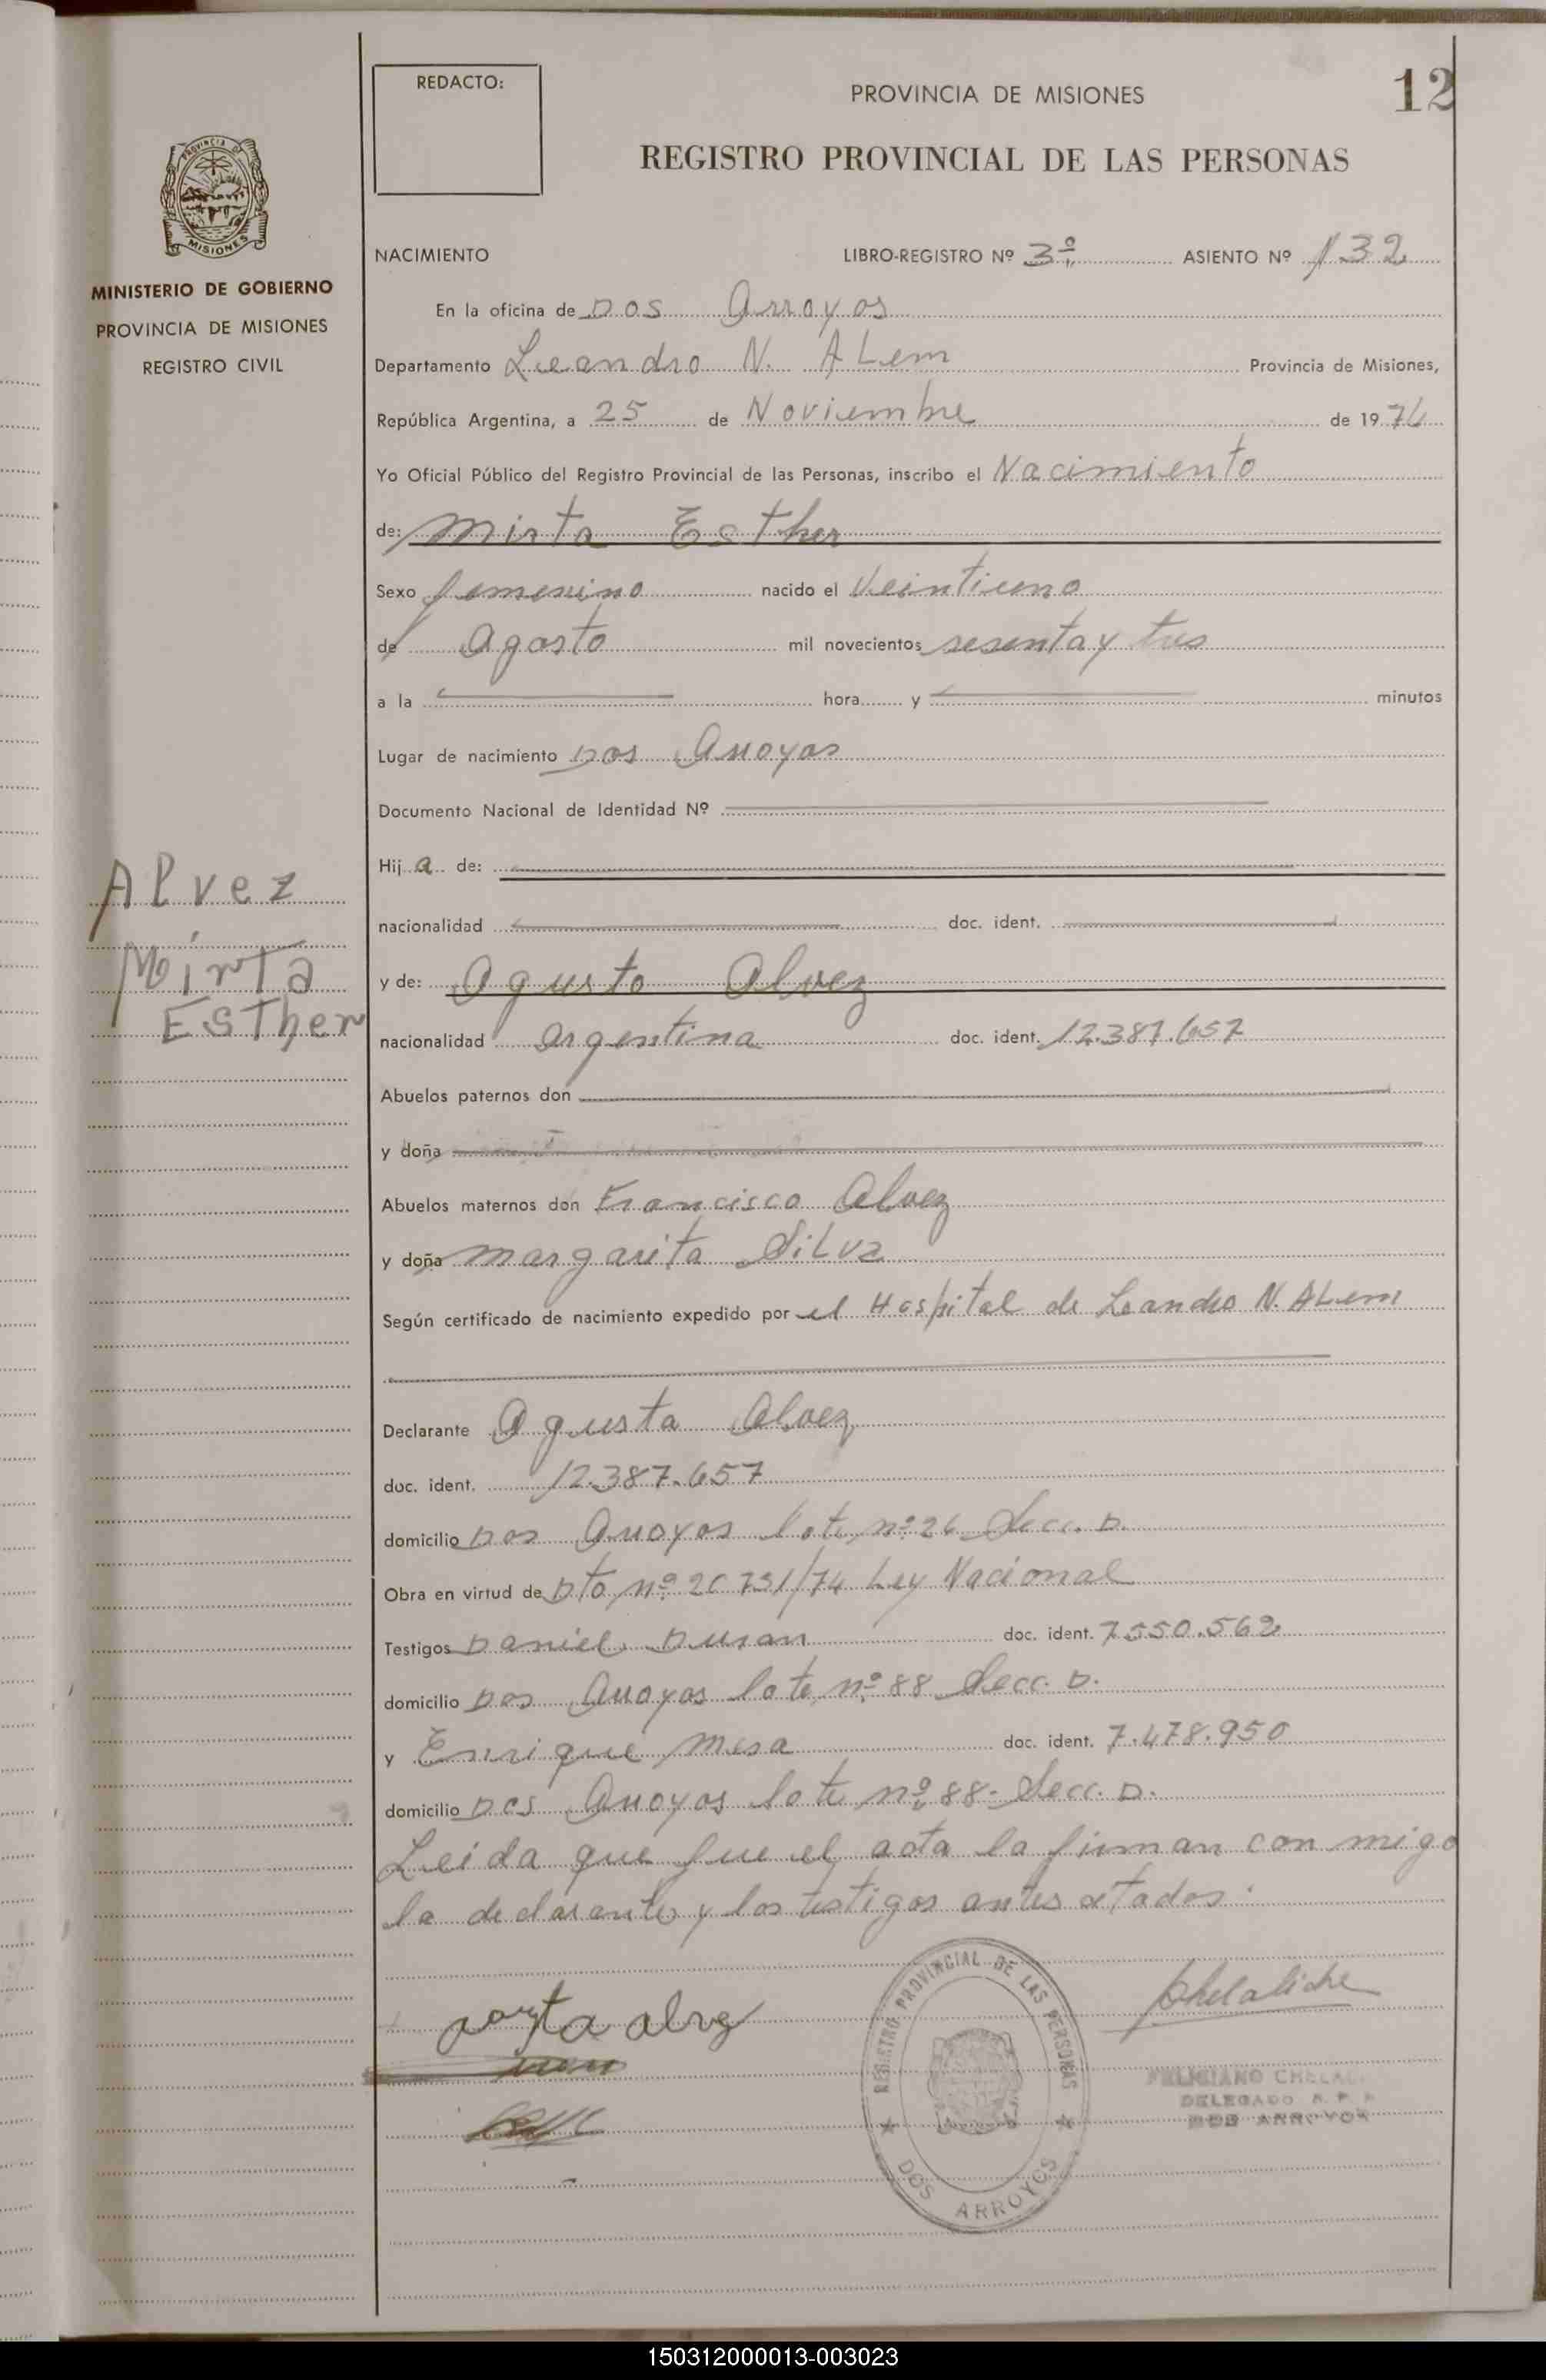 12
REDACTO:
PROVINCIA DE MISIONES
REGISTRO PROVINCIAL DE LAS PERSONAS
PROVINCIA D
MISIONES
MINISTERIO DE GOBIERNO
PROVINCIA DE MISIONES
REGISTRO CIVIL
NACIMIENTO LIBRO-REGISTRO Nº 3º ASIENTO Nº 132
En la oficina de Dos Arroyos
Departamento Leandro N. ALem Provincia de Misiones,
República Argentina, a 25 de Noviembre de 1976
Yo Oficial Público del Registro Provincial de las Personas, inscribo el Nacimiento
de: Mirta Esther
Sexo femenino nacido el Veintiuno
de Agosto mil novecientos sesenta y tres
a la hora y minutos
Lugar de nacimiento Dos Arroyos
Documento Nacional de Identidad Nº
Hij a de:
nacionalidad doc. ident.
ALvez
Mirta
EsTher
y de: Agusto Alvez
nacionalidad Argentina doc. ident. 12.387.657
Abuelos paternos don
y doña
Abuelos maternos don Francisco Alvez
y doña Margarita SiLva
Según certificado de nacimiento expedido por el Hospital de Leandro N. ALem
Declarante Agusta Alvez
doc. ident. 12.387.657
domicilio Dos Arroyos lote nº 26 Secc. D.
Obra en virtud de Dto. nº 20751/74 Ley Nacional
Testigos Daniel Duran doc. ident. 7550.562
domicilio Dos Arroyos lote nº 88 Secc. D.
y Enrique Mesa doc. ident. 7.478.950
domicilio Dos Arroyos lote nº 88- Secc. D.
Leida que fue el acta la firman con migo
la declarante y los testigos antes citados.
REGISTRO PROVINCIAL DE LAS PERSONAS
DOS ARROYOS
FELICIANO
DELEGADO R. P.
DOS ARROYOS
150312000013-003023